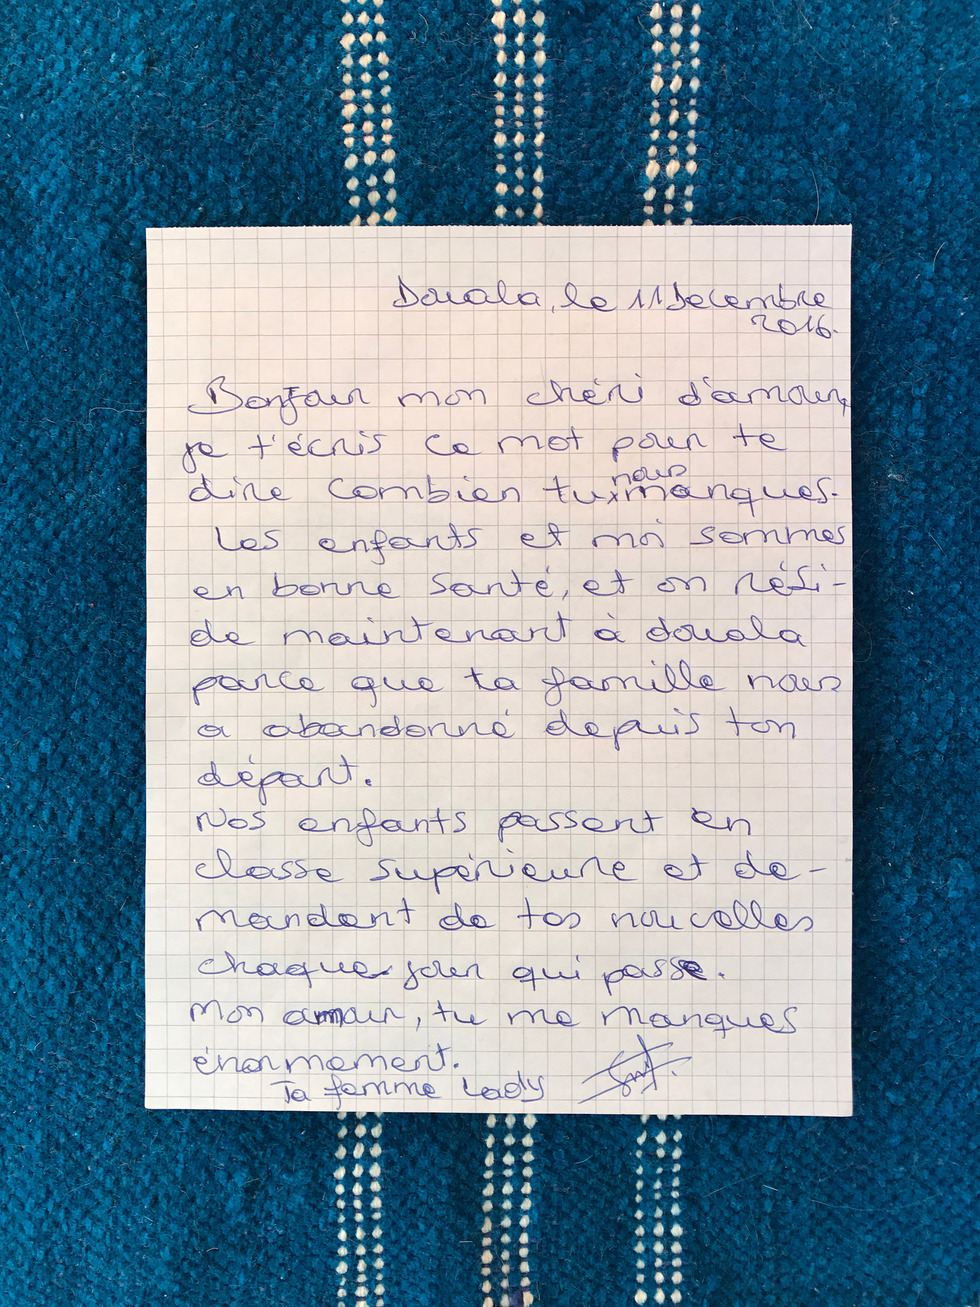 Douala, le 11 Decembre
2016.
Bonjour mon chéri d'amour,
je t'écris ce mot pour te
dire combien tu nous manques.
Les enfants et moi sommes
en bonne santé, et on rési-
de maintenant à douala
parce que ta famille nous
a abandonné depuis ton
départ.
Nos enfants passent en
classe supérieure et de-
mandent de tes nouvelles
chaque jour qui passe.
Mon amour, tu me manques
énormement.
Ta femme Lady